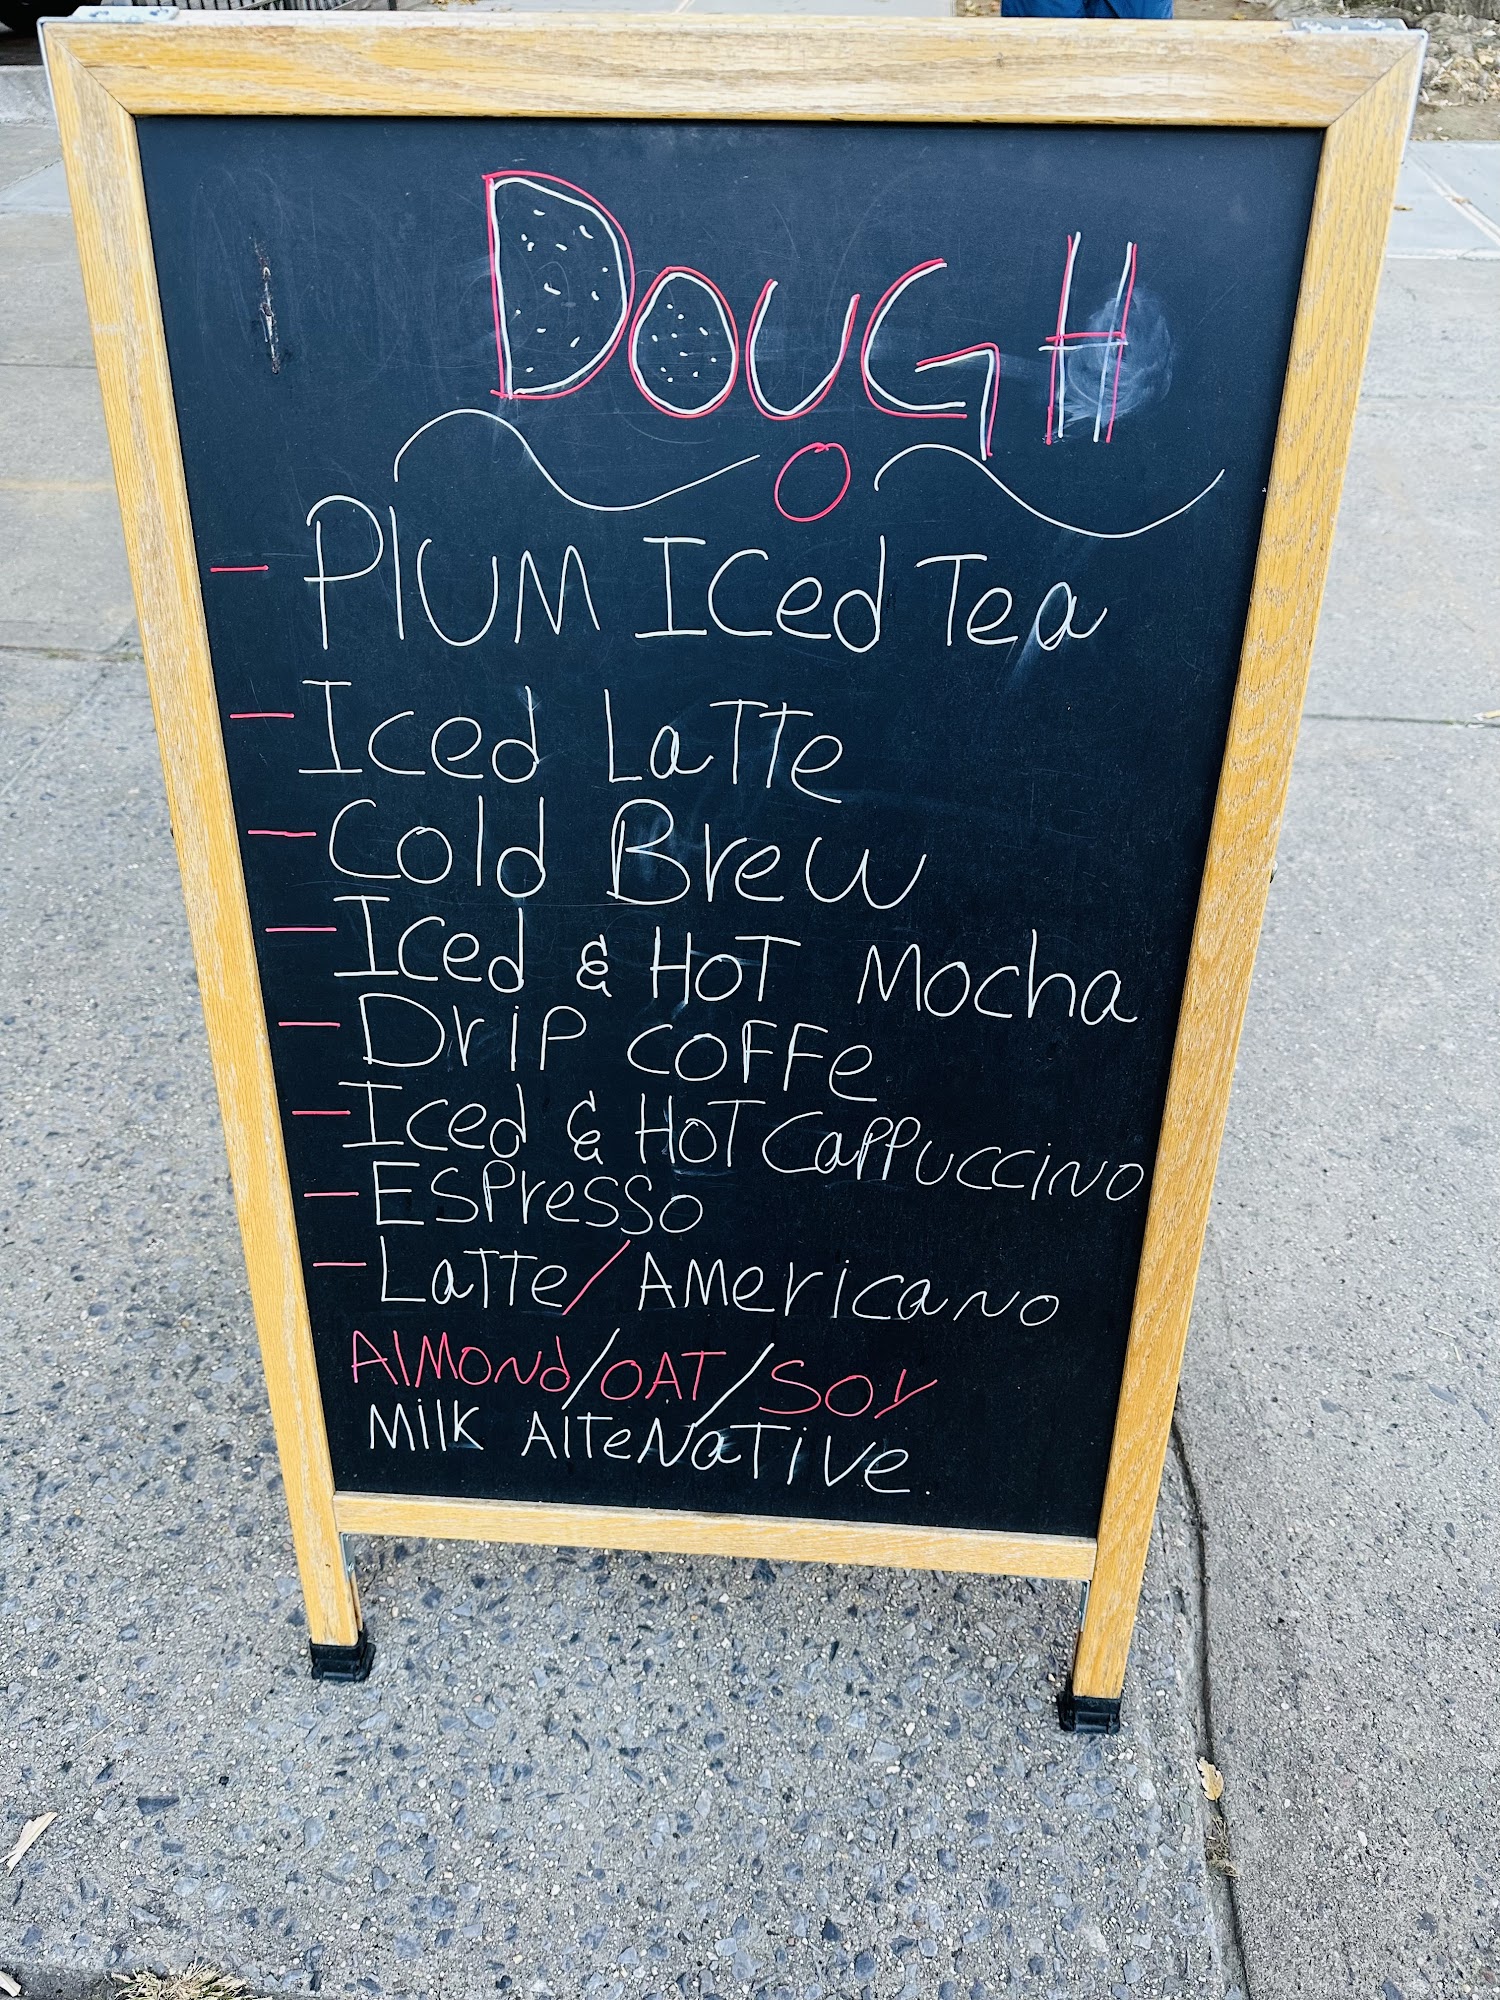 DOUGH
- PlUM ICed Tea
- Iced LaTTe
- Cold Brew
- ICed & HoT Mocha
- DriP COFFe
- Iced & HoT CaPPuccino
- EsPresso
- LaTTe/AMericaNo
AlMoNd/OAT/SOY
Milk AlTeNaTive.